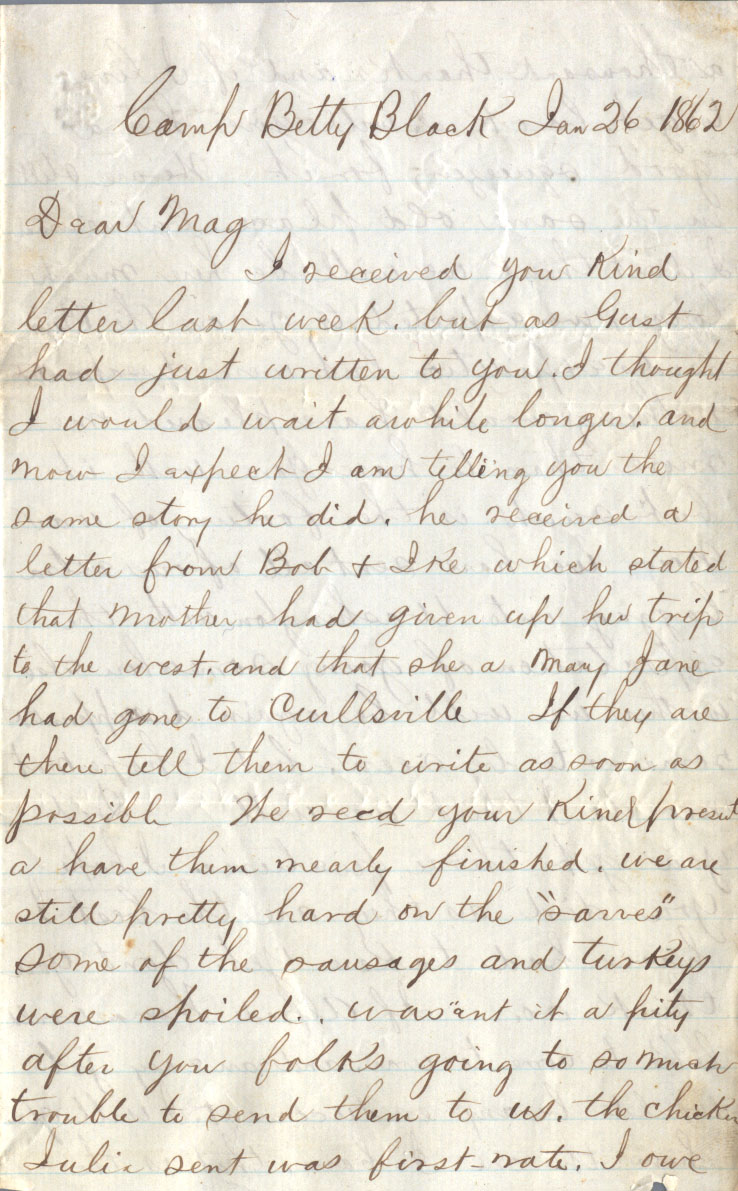 Camp Betty Black Jan 26 1862
Dear Mag
I received you Kind
letter last week. but as Gust
had just written to you. I thought
I would wait awhile longer. and
now I expect I am telling you the
same story he did. he received a
letter from Bob & Ike which stated
that Mother had given up her trip
to the west. and that she a Mary Jane
had gone to Curllsville If they are
there tell them to write as soon as
possible We recd your Kind present
a have them nearly finished. we are
still pretty hard on the "sarves"
some of the sausages and turkeys
were spoiled. . was"ant. it a pity
after you folks going to so much
trouble to send them to us. the chicken
Julia sent was first-rate. I owe